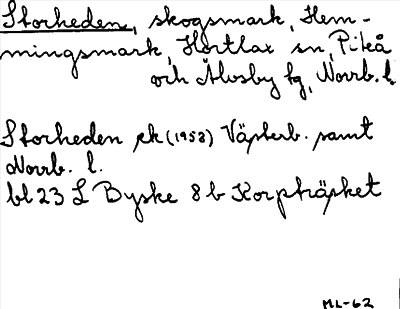 Storheden, skogsmark, Hem-
mingsmark, Hortlax sn, Piteå
och Älvsby tg, Norrb. l.
Storheden ek (1953) Västerb. samt
Norrb. l.
bl 23 L Byske 8 b Korpträsket
ML-62